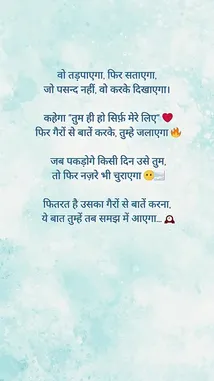 वो तड़पाएगा, फिर सताएगा,
जो पसन्द नहीं, वो करके दिखाएगा।
कहेगा "तुम ही हो सिर्फ़ मेरे लिए" ❤️
फिर गैरों से बातें करके, तुम्हे जलाएगा 🔥
जब पकड़ोगे किसी दिन उसे तुम,
तो फिर नज़रे भी चुराएगा
फितरत है उसका गैरों से बातें करना,
ये बात तुम्हें तब समझ में आएगा...